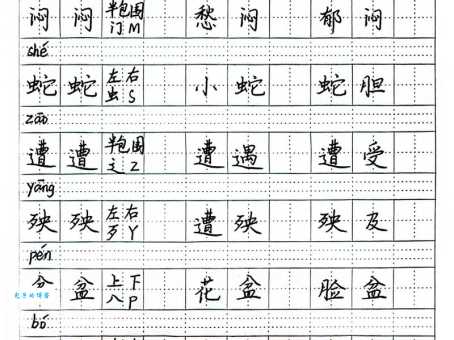 闷 闷 半包围 门 M 愁 闷 郁 闷
shé
蛇 蛇 左右 虫 S 小 蛇 蛇 胆
zāo
遭 遭 半包围 辶 Z 遭 遇 遭 受
yāng
殃 殃 左右 歹 Y 遭 殃 殃 及
pén
盆 盆 上下 八 P 花 盆 脸 盆
bó